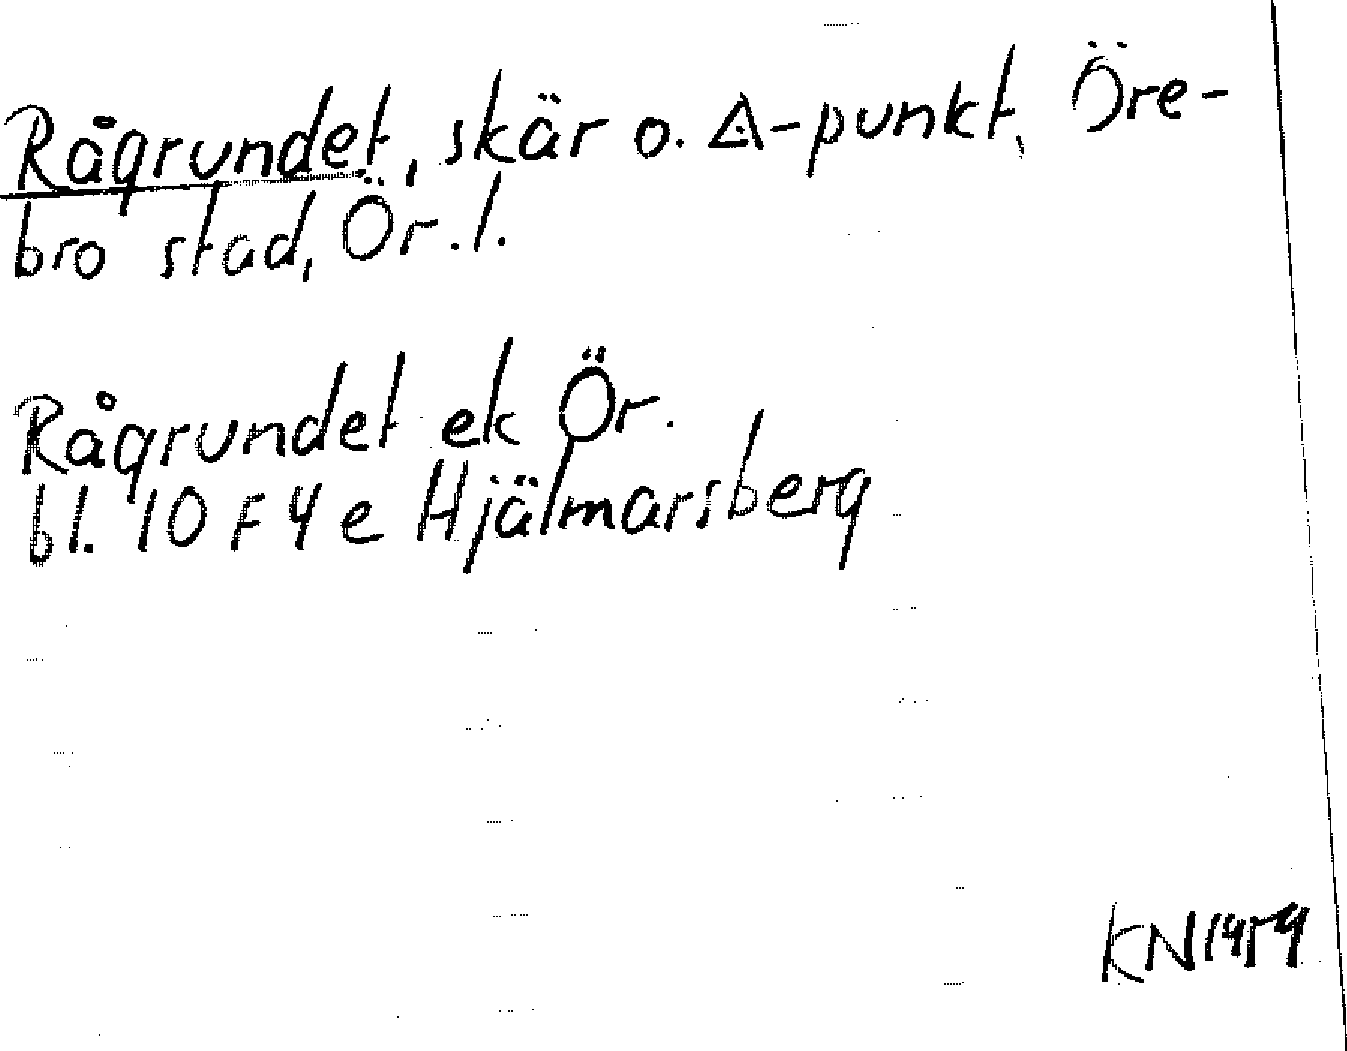 Rågrundet, skär o. △-punkt, Öre-
bro stad, Ör. l.
Rågrundet ek Ör.
bl. 10 F 4 e Hjälmarsberg
KN 1959